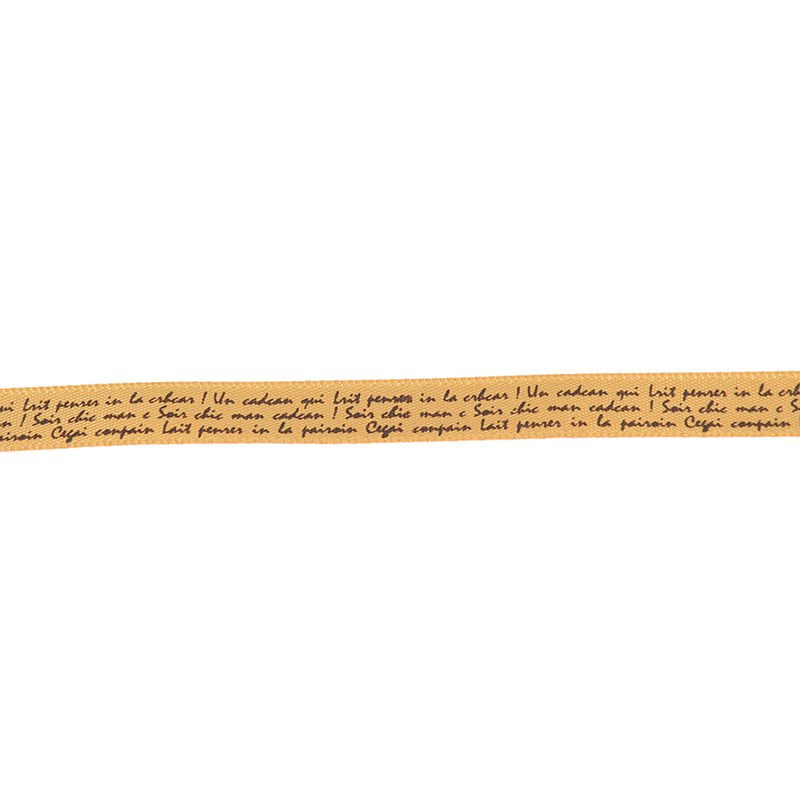 ui Lrit penrer in la crhcar ! Un cadcan qui Lrit penrer in la crhcar ! Un cadcan qui Lrit penrer in la crh
n ! Soir chic man c Soir chic man cadcan ! Soir chic man c Soir chic man cadcan ! Soir chic man c S
airoin Cegai conpain Lait penrer in la pairoin Cegai conpain Lait penrer in la pairoin Cegai conpain